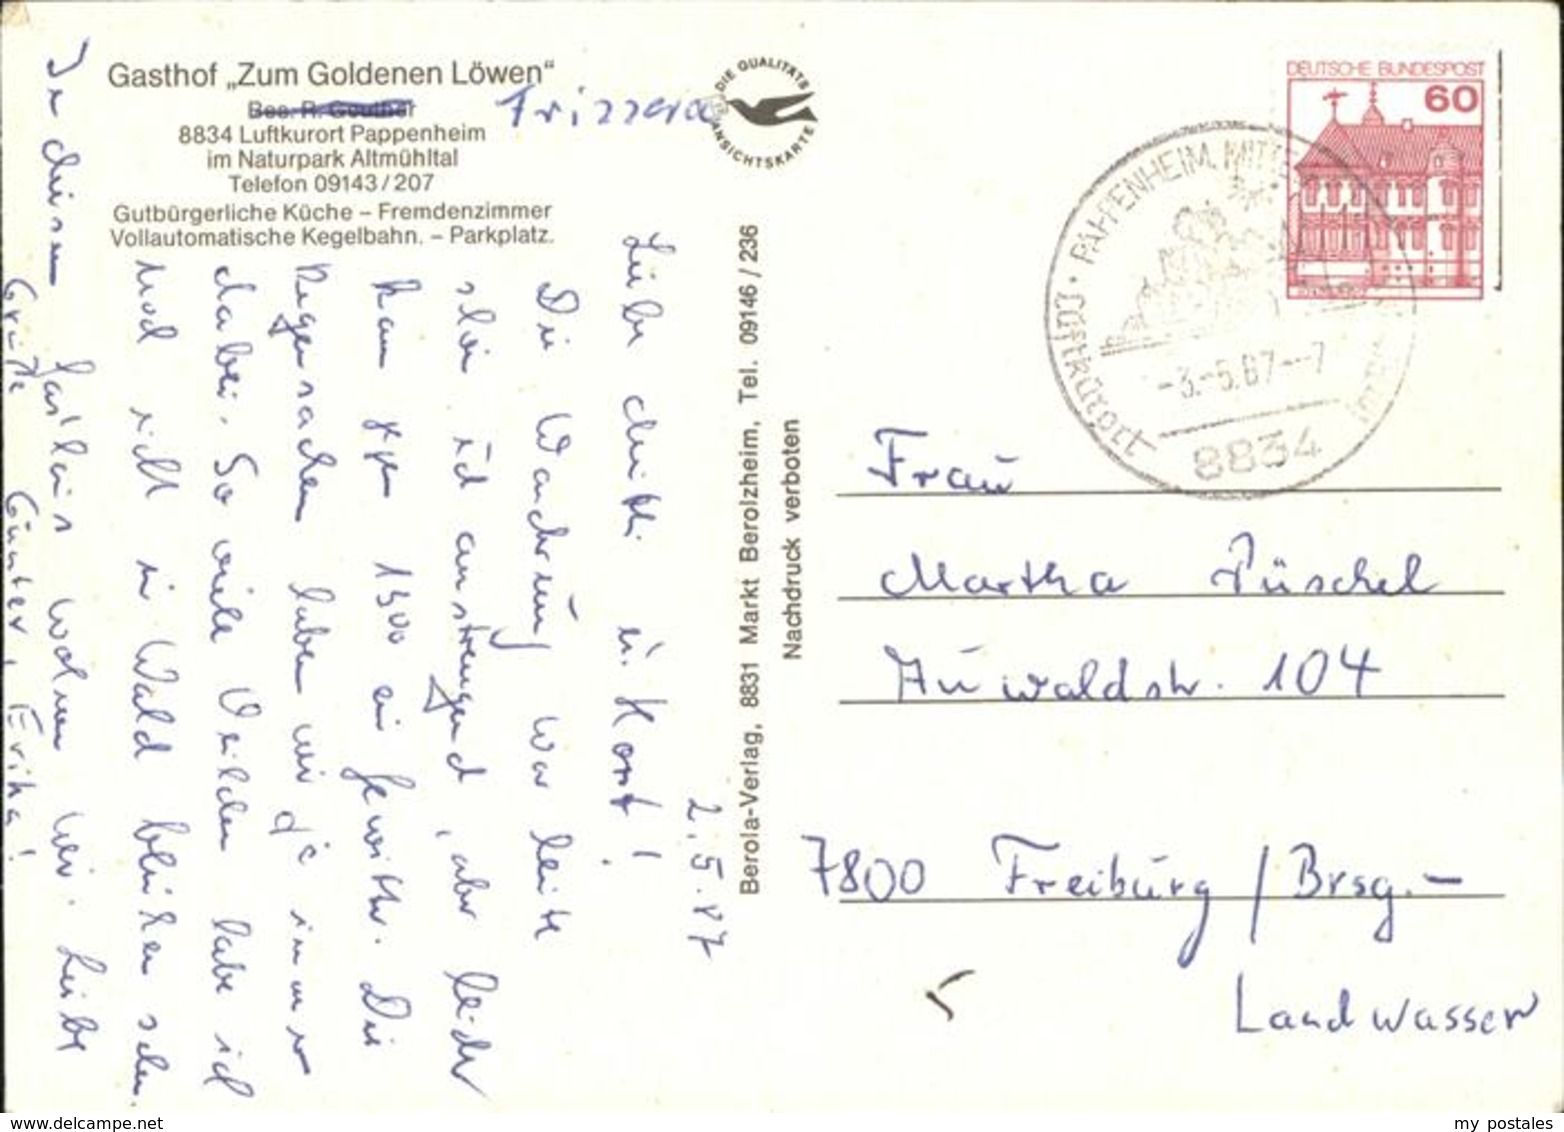 Gasthof „Zum Goldenen Löwen“
Bes. R. Gouthet
Frizzera
8834 Luftkurort Pappenheim
im Naturpark Altmühltal
Telefon 09143/207
Gutbürgerliche Küche – Fremdenzimmer
Vollautomatische Kegelbahn. – Parkplatz.
DIE QUALITÄTS
ANSICHTSKARTE
2.5.87
Liebe Mutti u. Horst!
Die Wanderung war heute
schön und anstrengend, aber leider
kam gegen 1500 ein Gewitter. Die
Regensachen haben wir ja immer
dabei. So viele Veilchen habe ich
noch nicht im Wald blühen sehen.
In diesem Gasthaus wohnen wir. Liebe
Grüße Günter, Erika!
Berola-Verlag, 8831 Markt Berolzheim, Tel. 09146/236
Nachdruck verboten
DEUTSCHE BUNDESPOST
60
PAPPENHEIM, MITTE
Luftkurort
-3.-5.87---7
8834
Frau
Martha Püschel
Auwaldstr. 104
7800 Freiburg / Brsg.-
Landwasser
my postales